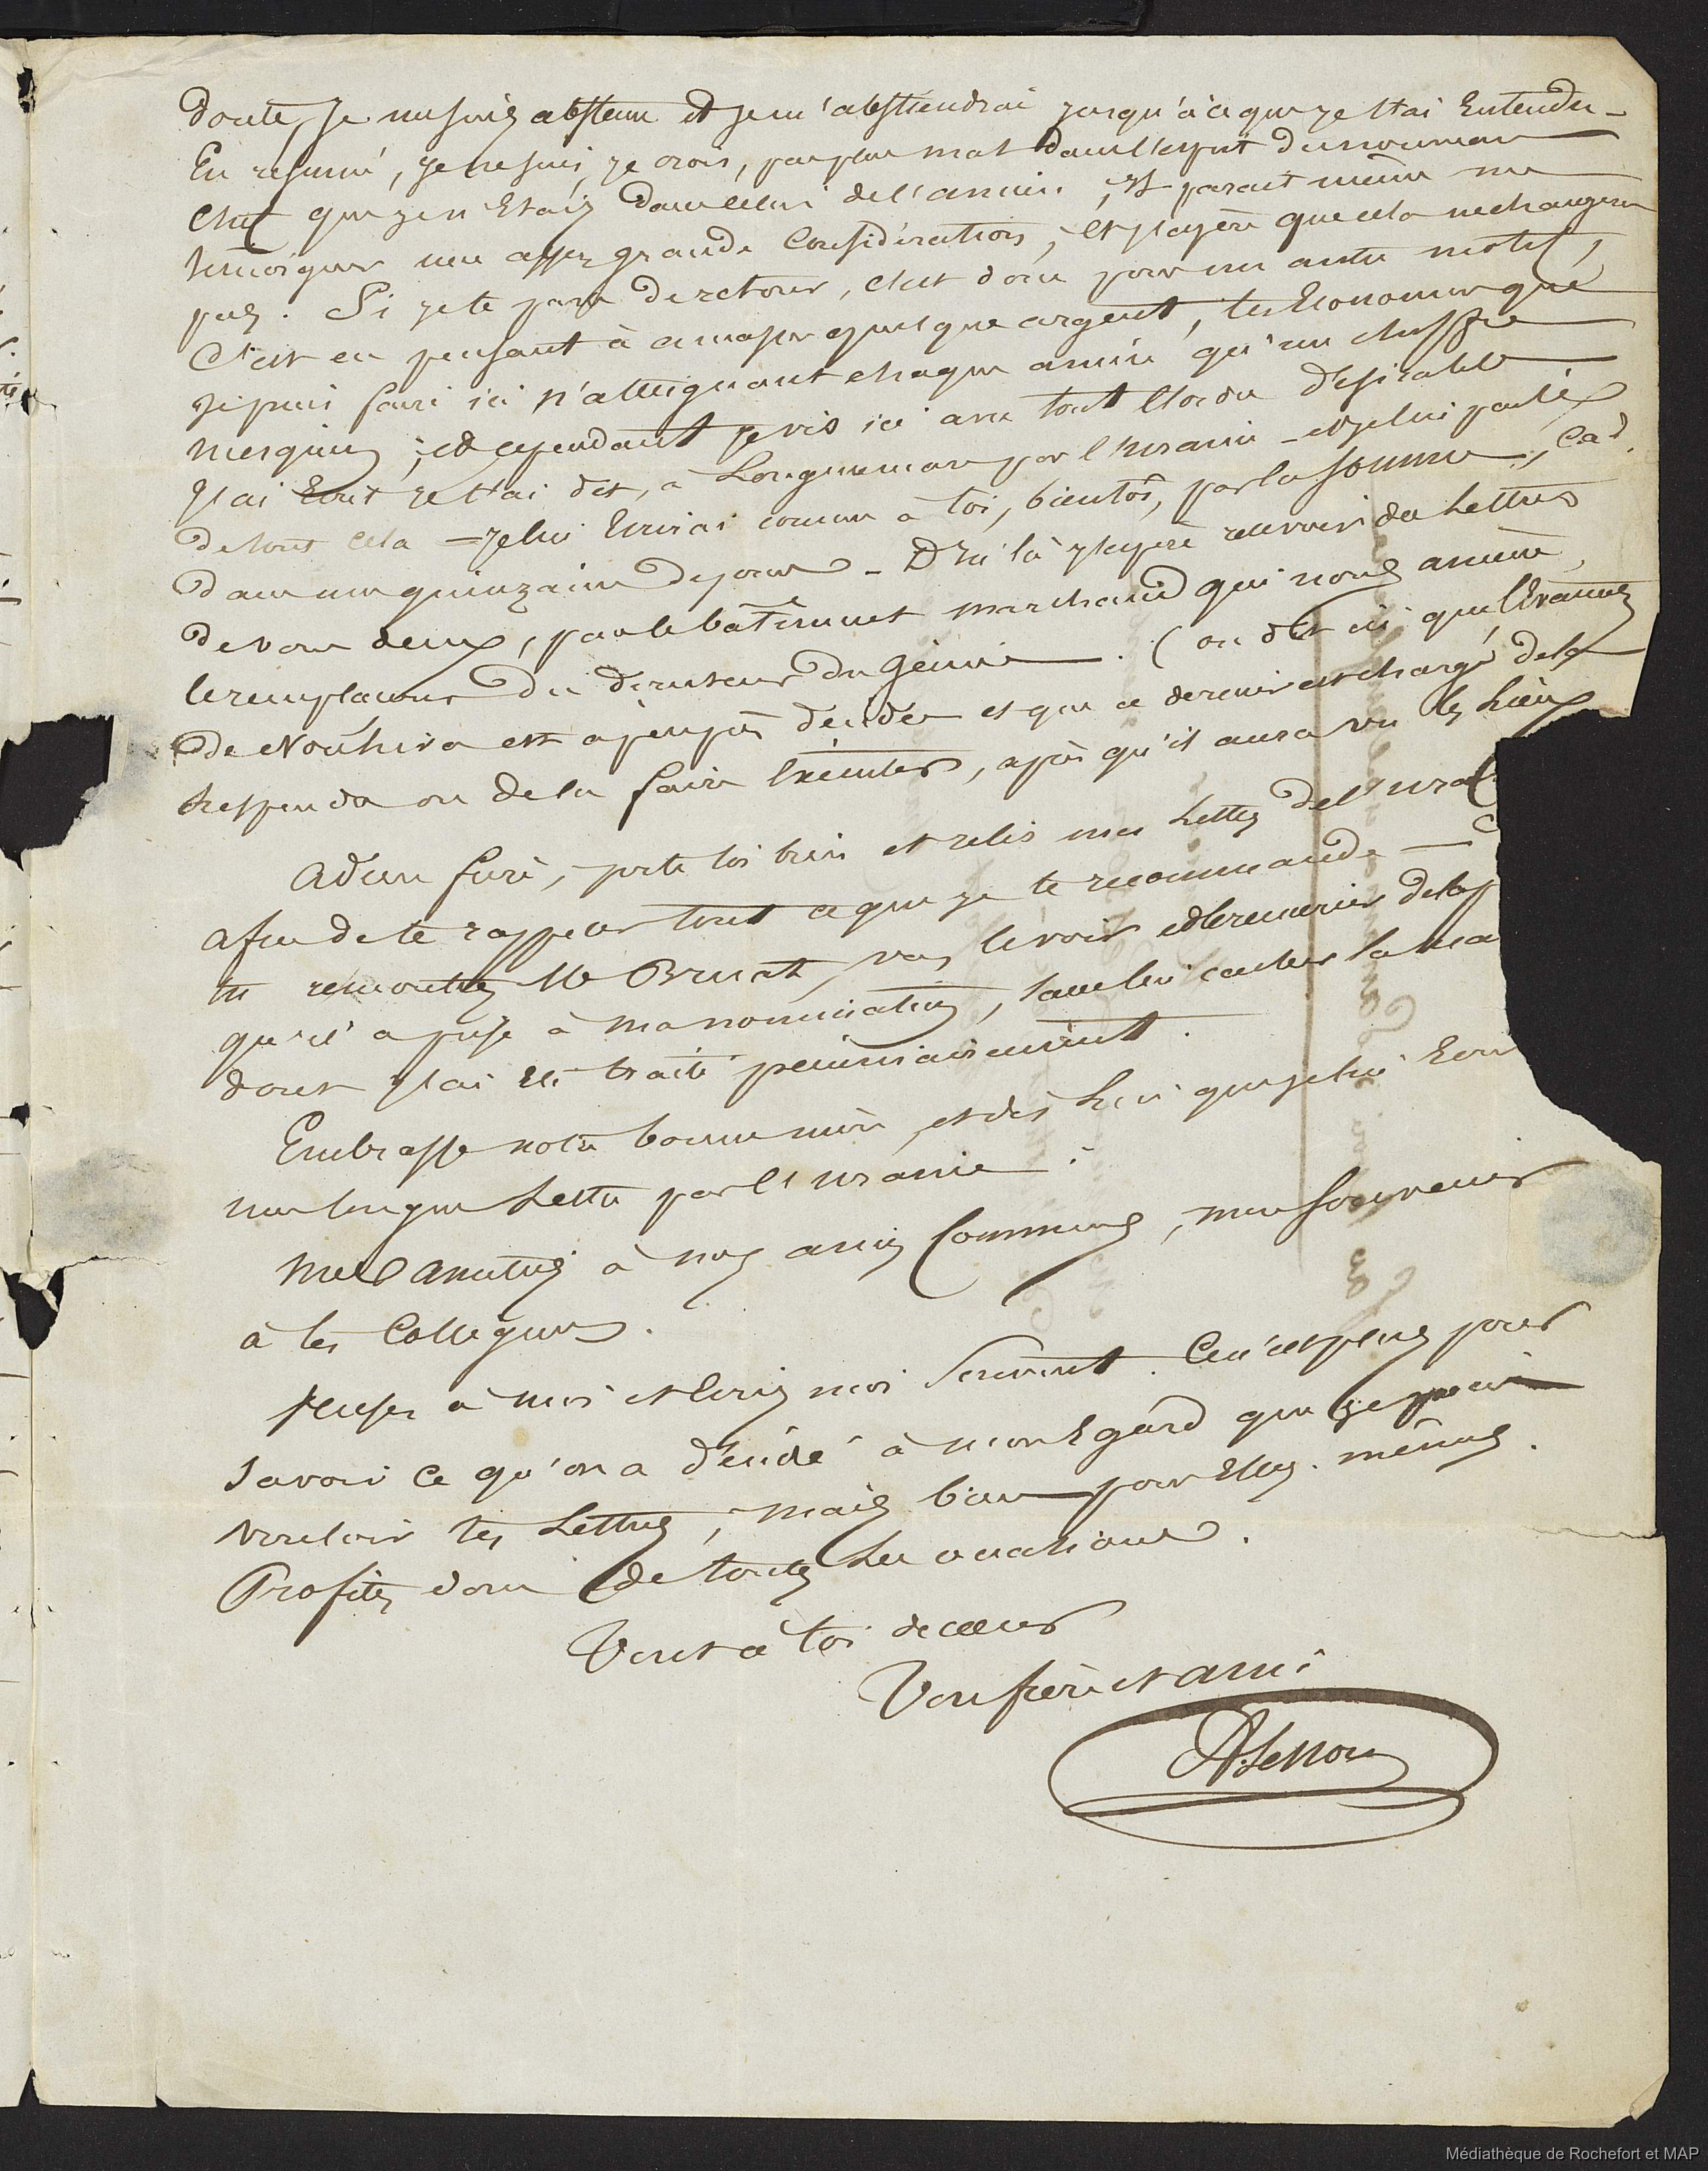 doute, je me suis abstenu et je m'abstiendrai jusqu'à ce que je t'ai Entendu -
En résumé, je ne suis, je crois, pas plus mal dans l'esprit du nouveau
Chef que je n'Etais dans celui de l'ancien ; Il parait même me
témoigner une assez grande Considération, et j'espère que cela ne changera
pas. Si je te parle de retour, c'est donc pour un autre motif,
C'est en pensant à amasser quelque argent, les Economies que
je puis faire ici n'atteignant chaque année qu'un chiffre
mesquin ; et cependant je vis ici avec tout l'ordre désirable
J'ai Ecrit je t'ai dit, à Longueuemare par l'Uranie - et je lui parlé
de tout cela - je lui Ecrirai comme à toi, bientôt, par la Somme, c.a.d.
dans une quinzaine de jours - D'ici là j'espère recevoir des Lettres
de vous deux, par le bâtiment marchand qui nous amène
le remplaçant du directeur du Génie. (on dit ici que l'Evacuation
de Nouhiva est à peu près décidée et que ce dernier est chargé de la
suspendre ou de la faire Exécuter, après qu'il aura vu les lieux
Adieu frère, porte toi bien et relis mes Lettres de l'Ura
afin de te rappeler tout ce que je te recommande —
tu remontes Mr Bruat, vas le voir et le remercier de la p
qu'il a prise à ma nomination, sans lui cacher la ma
dont j'ai Eté traité pécuniairement.
Embrasse notre bonne mère, et dis Lui que je lui Ecri
une longue Lettre par l'Uranie.
Mes amitiés à nos amis Communs, mon Souvenir
à tes Collègues.
Pense à moi et Ecris moi Souvent. Ce n'est pas pour
savoir ce qu'on a décidé à mon Egard que je
vouloir tes Lettres, mais bien pour Elles-mêmes.
Profite donc de toutes Les occasions.
Tout à toi de cœur
Ton frère et ami
A. Lesson
Médiathèque de Rochefort et MAP